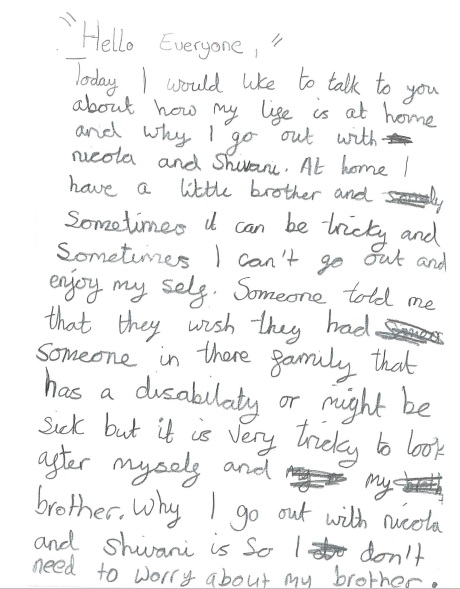 "Hello Everyone, "
Today I would like to talk to you
about how my life is at home
and why I go out with
nicola and Shivani. At home I
have a little brother and
Sometimes it can be tricky and
Sometimes I can't go out and
enjoy my self. Someone told me
that they wish they had
Someone in there family that
has a disabilaty or might be
Sick but it is very tricky to look
after myself and my
brother. Why I go out with nicola
and Shivani is So I don't
need to worry about my brother.